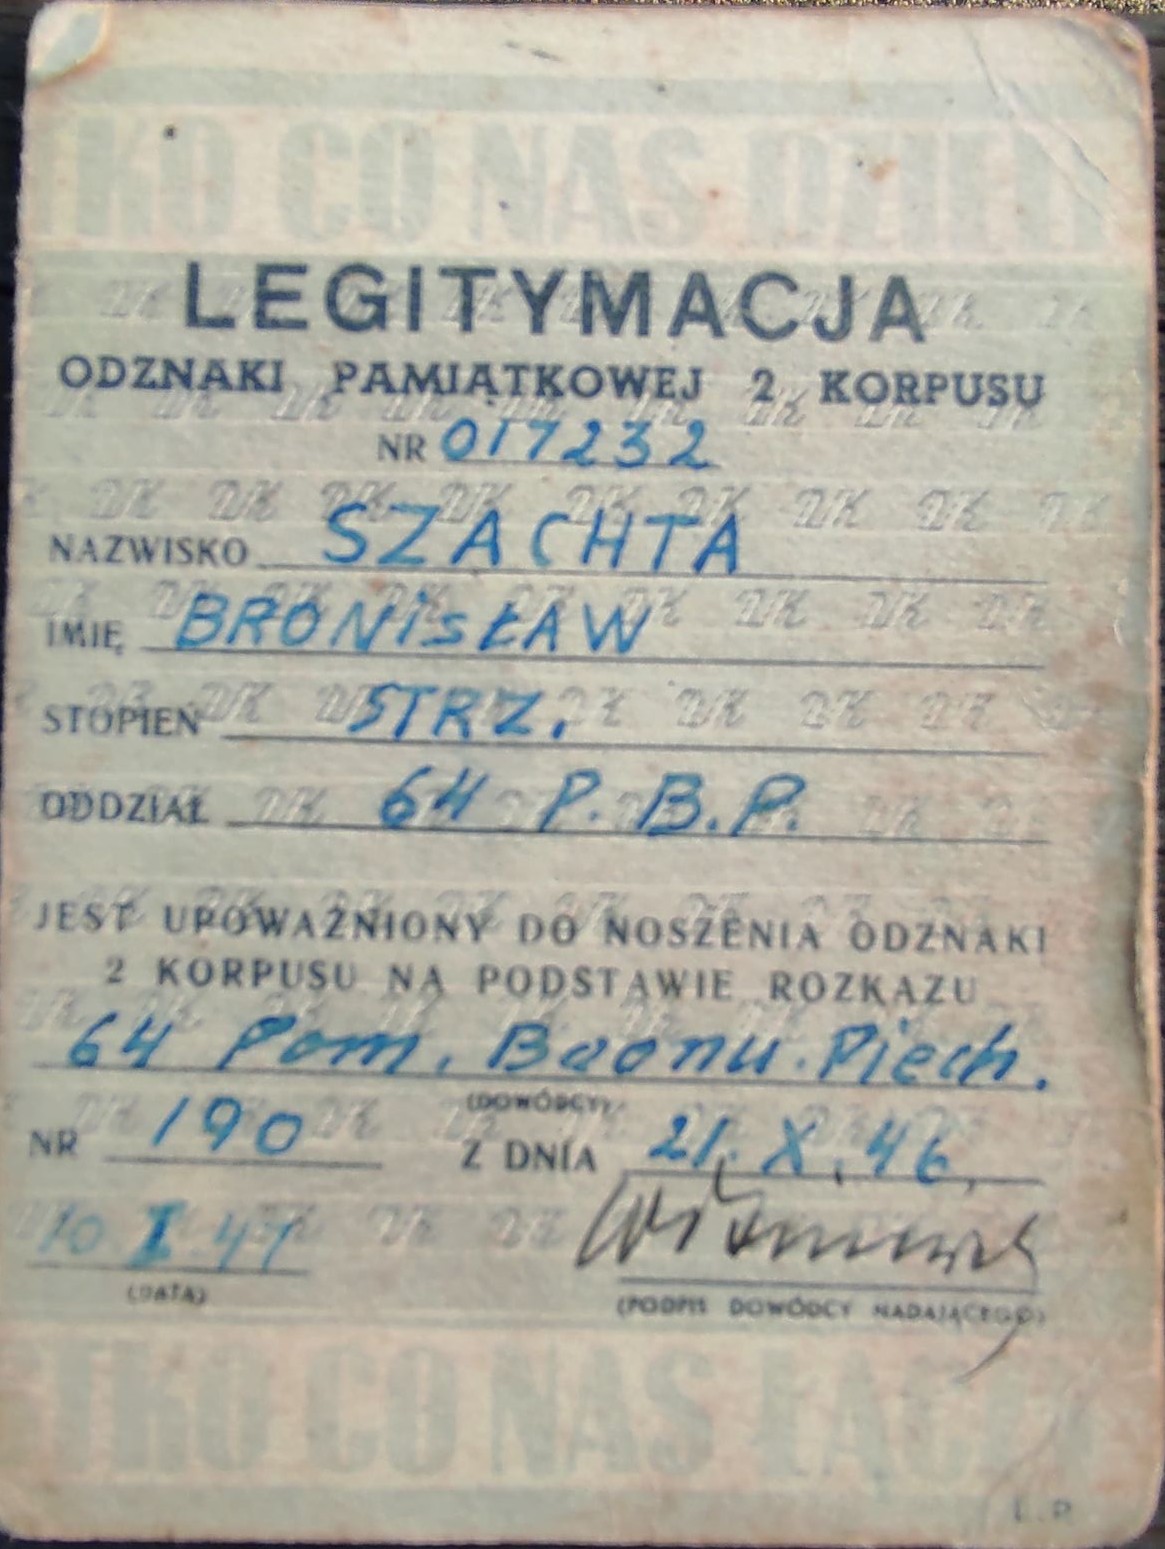 TKO CO NAS DZIEL
LEGITYMACJA
ODZNAKI PAMIĄTKOWEJ 2 KORPUSU
NR 017232
NAZWISKO SZACHTA
IMIĘ BRONISŁAW
STOPIEŃ STRZ.
ODDZIAŁ 64 P.B.P.
JEST UPOWAŻNIONY DO NOSZENIA ODZNAKI
2 KORPUSU NA PODSTAWIE ROZKAZU
64 Pom. Baonu. Piech.
(DOWÓDCY)
NR 190 Z DNIA 21.X.46.
10 I 47
(DATA) (PODPIS DOWÓDCY NADAJĄCEGO)
TKO CO NAS ŁĄCZY
L.P.